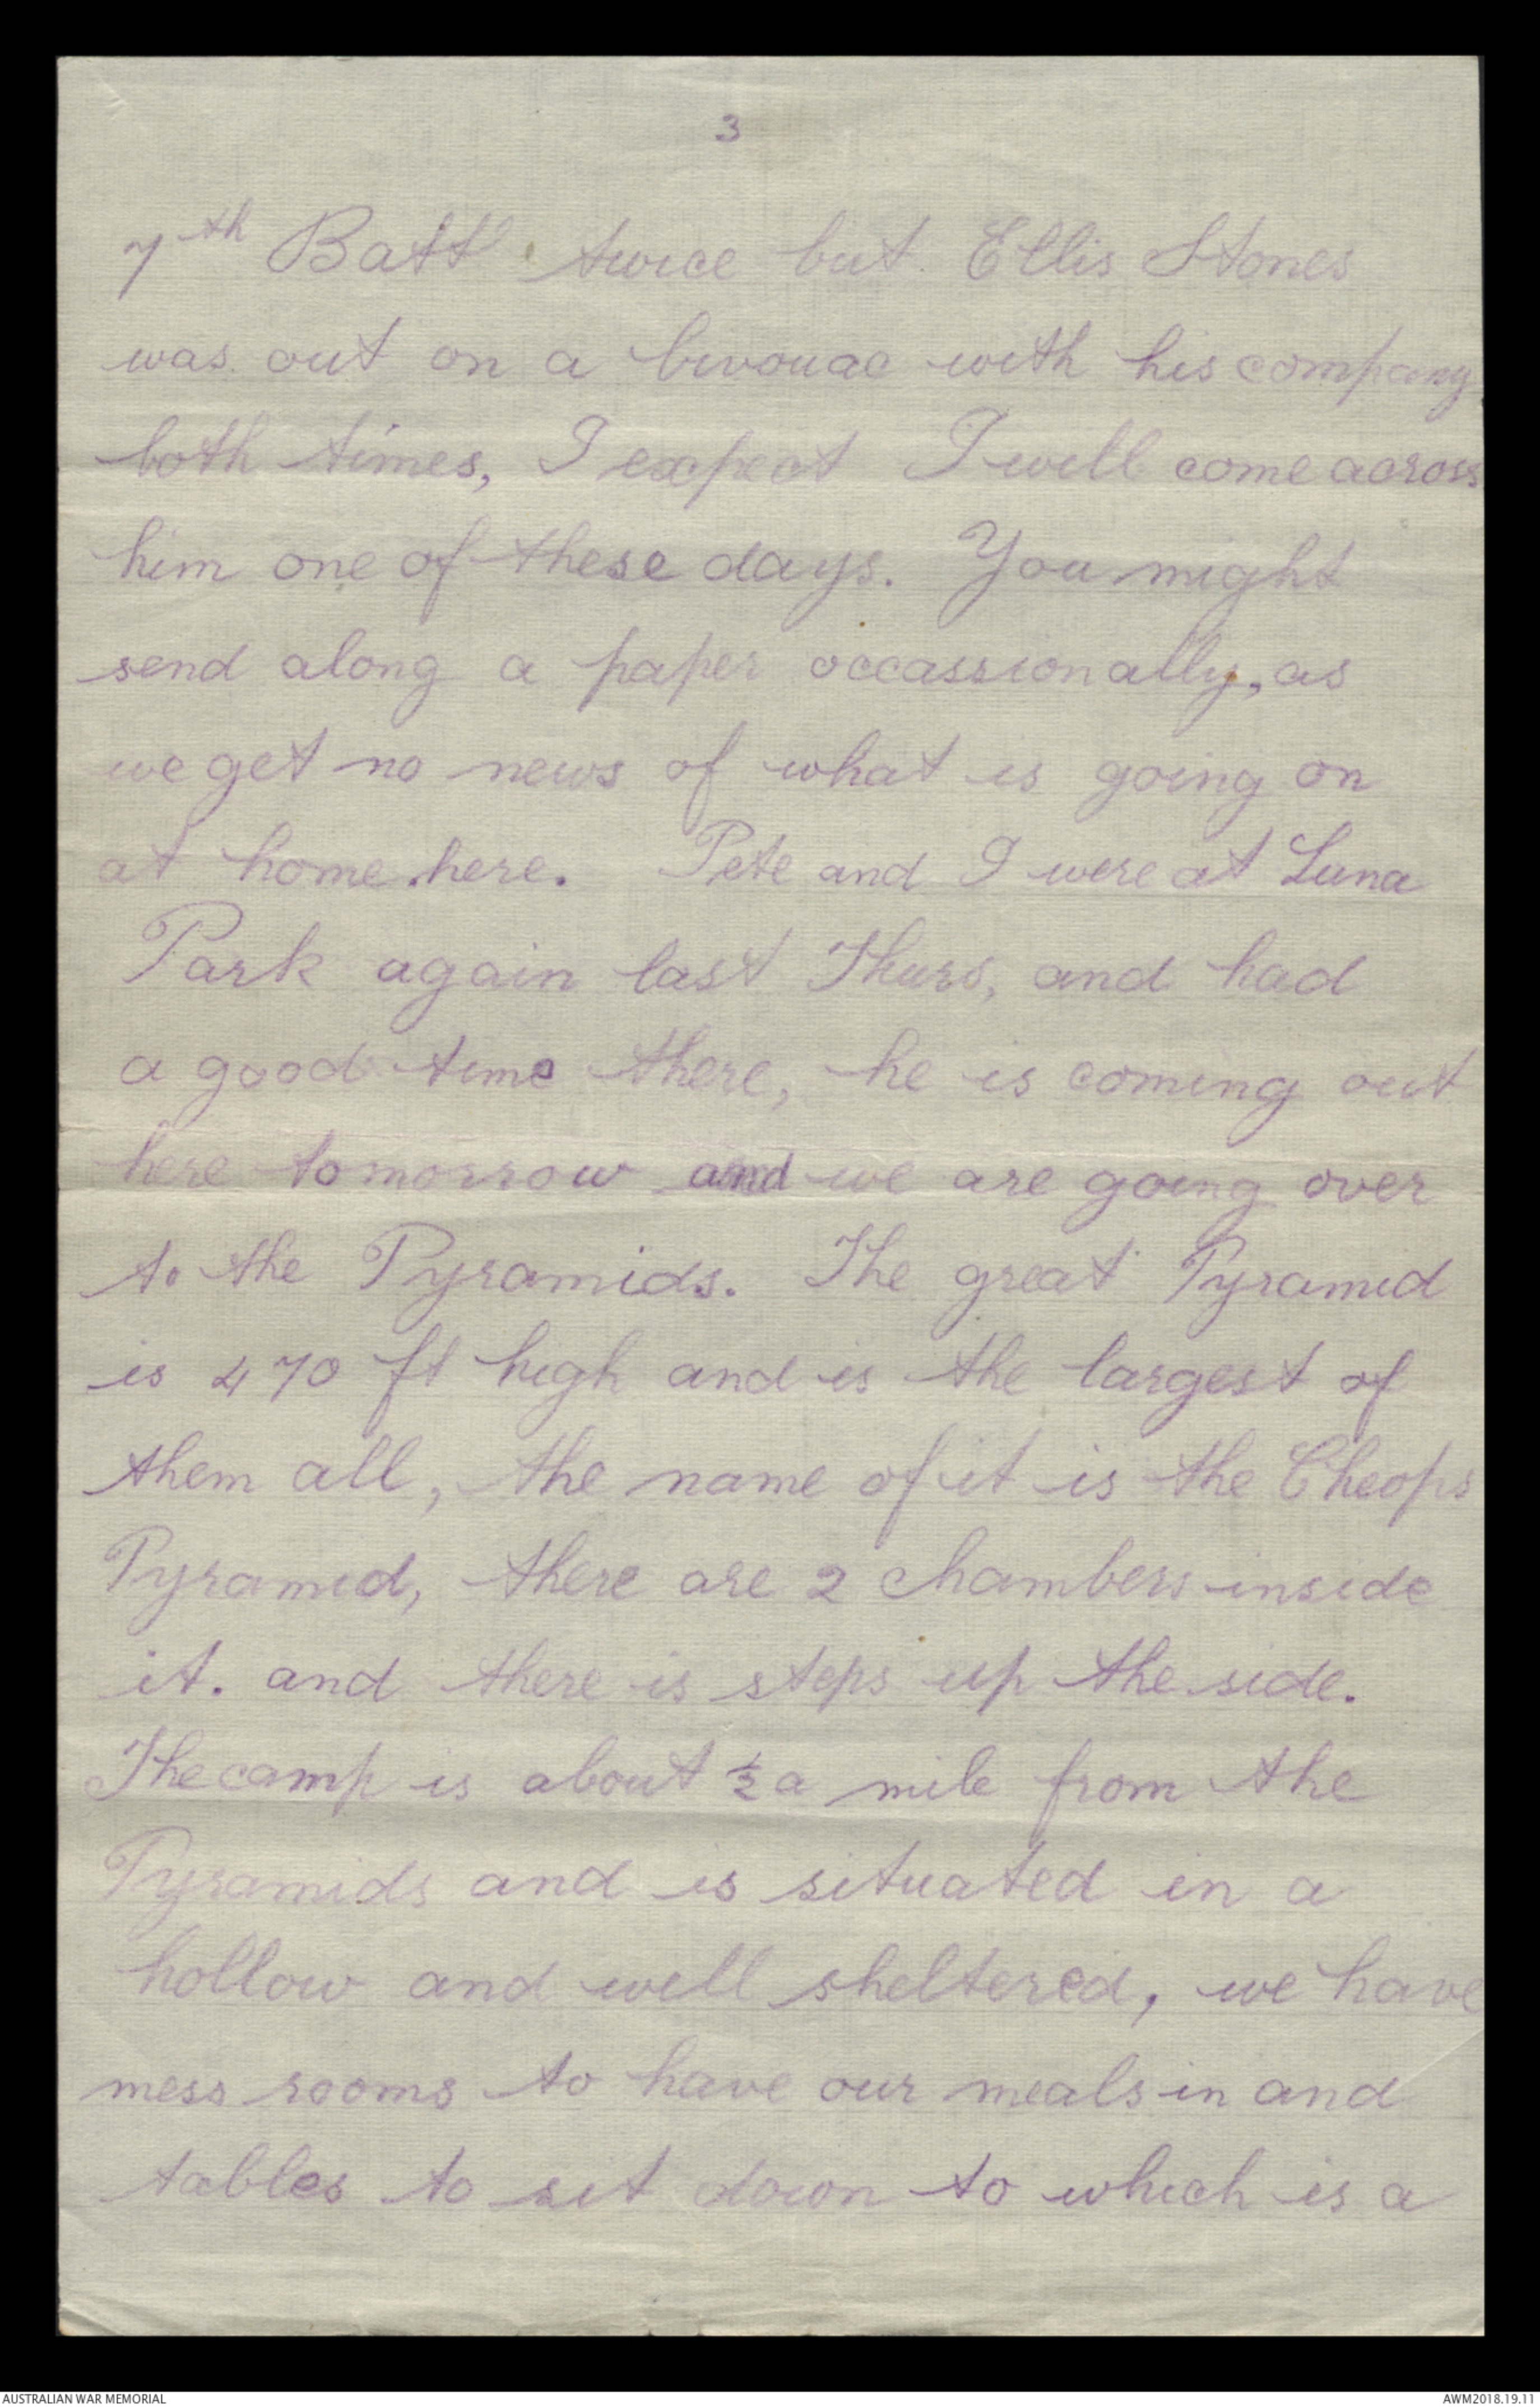 3
7th Batt twice but Ellis Stones
was out on a bivouac with his company
both times, I expect I will come across
him one of these days. You might
send along a paper occassionally, as
we get no news of what is going on
at home here. Pete and I were at Luna
Park again last Thurs, and had
a good time there, he is coming out
here tomorrow and we are going over
to the Pyramids. The great Pyramid
is 470 ft high and is the largest of
them all, the name of it is the Cheops
Pyramid, there are 2 chambers inside
it. and there is steps up the side.
The camp is about ½ a mile from the
Pyramids and is situated in a
hollow and well sheltered, we have
mess rooms to have our meals in and
tables to sit down to which is a
AUSTRALIAN WAR MEMORIAL
AWM2018.19.11